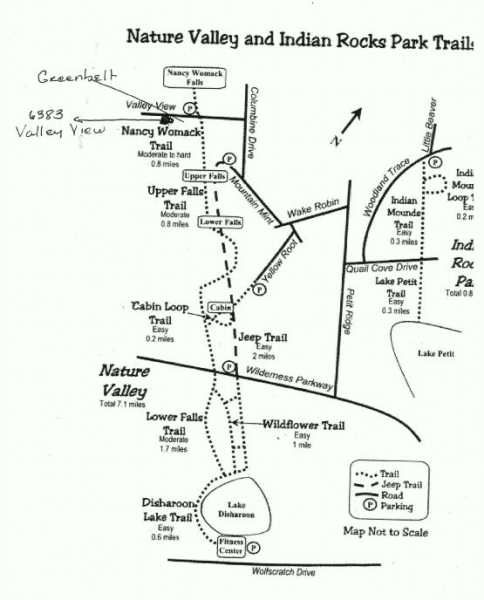 Nature Valley and Indian Rocks Park Trails
Greenbelt
Nancy Womack
Falls
Valley View
P
Columbine Drive
6383
Valley View
Nancy Womack
Trail
Moderate to hard
0.8 miles
P
N
Little Beaver
P
Upper Falls
Mountain Mint
Woodland Trace
Upper Falls
Trail
Moderate
0.8 miles
Wake Robin
Indian
Mounds
Trail
Easy
0.3 miles
Lower Falls
Yellow Root
P
Quail Cove Drive
Total 0.8
Lake Petit
Trail
Easy
0.3 miles
Cabin Loop
Trail
Easy
0.2 miles
Cabin
Petit Ridge
Jeep Trail
Easy
2 miles
Lake Petit
P
Wilderness Parkway
Nature
Valley
Total 7.1 miles
Lower Falls
Trail
Moderate
1.7 miles
Wildflower Trail
Easy
1 mile
Trail
Jeep Trail
Road
P Parking
Map Not to Scale
Disharoon
Lake Trail
Easy
0.6 miles
Lake
Disharoon
Fitness
Center
P
Wolfscratch Drive